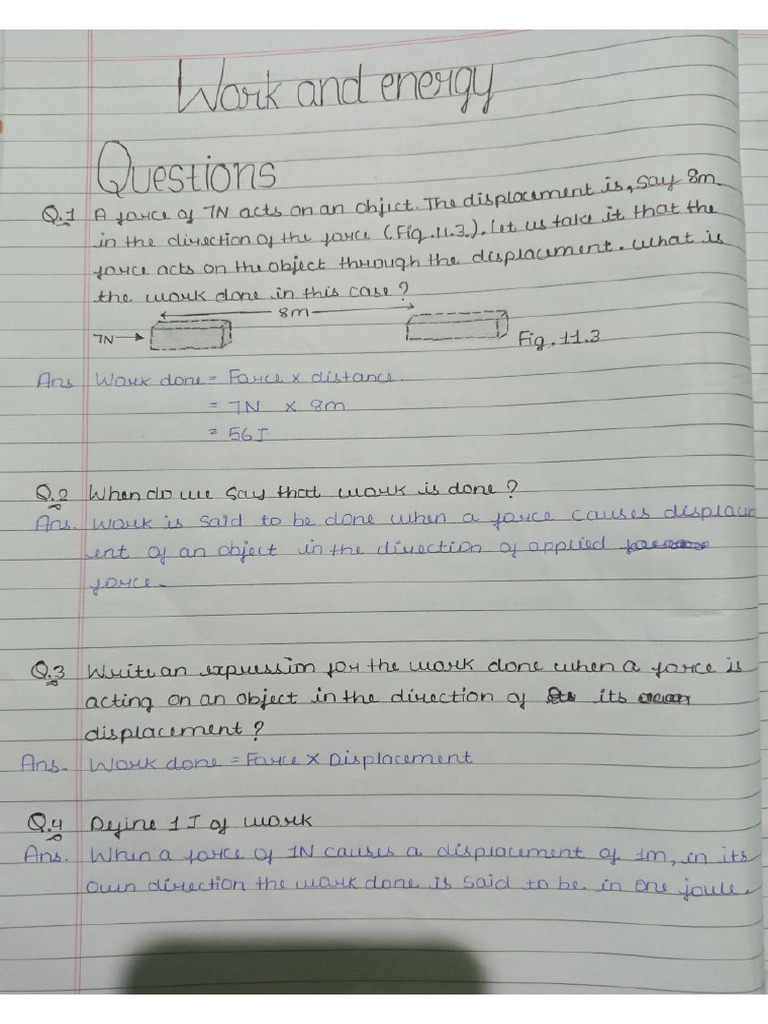 Work and energy
Questions
Q.1 A force of 7N acts on an object. The displacement is, say 8m.
in the direction of the force (Fig.11.3). let us take it that the
force acts on the object through the displacement. what is
the work done in this case?
8m
7N
Fig. 11.3
Ans Work done = Force x distance
= 7N x 8m
= 56J.
Q.2 When do we say that work is done?
Ans. Work is said to be done when a force causes displacem
ent of an object in the direction of applied
force.
Q.3 Write an expression for the work done when a force is
acting on an object in the direction of its
displacement?
Ans. Work done = Force x Displacement
Q.4 Define 1 J of work
Ans. When a force of 1N causes a displacement of 1m, in its
own direction the work done is said to be in one joule.